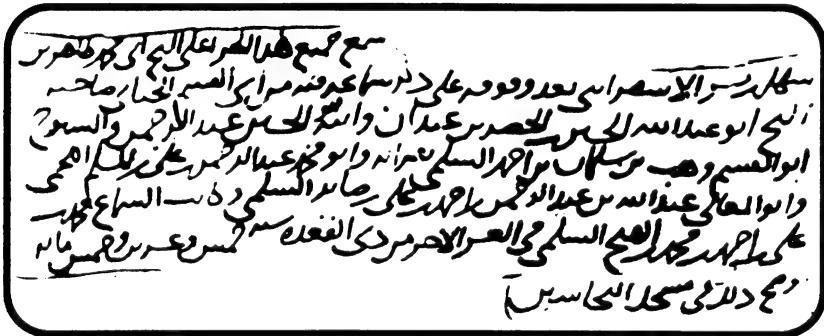 سمع جميع هذا الجزء على الشيخ ابي محمد طاهر بن
سهل بن بشر الاسفراييني بعد وقوفه على ذكر سماعه فيه من ابي القسم الحنائي صاحبه
الشيخ ابو عبد الله الحسين بن الخضر بن عبدان وابنه ابو الحسين عبد الرحمن والشيوخ
ابو القسم وهب بن سلمان بن احمد السلمي بقراءته وابو محمد عبد الرحمن بن علي بن المسلم اللخمي
وابو المعالي عبد الله بن عبد الرحمن بن احمد بن علي بن صابر السلمي وكاتب السماع محمد بن
علي بن احمد بن محمد بن الفتح السلمي في العشر الاخر من ذي القعده سنه خمس وعشرين وخمس مائه
وصح ذلك في مسجد النحاسين